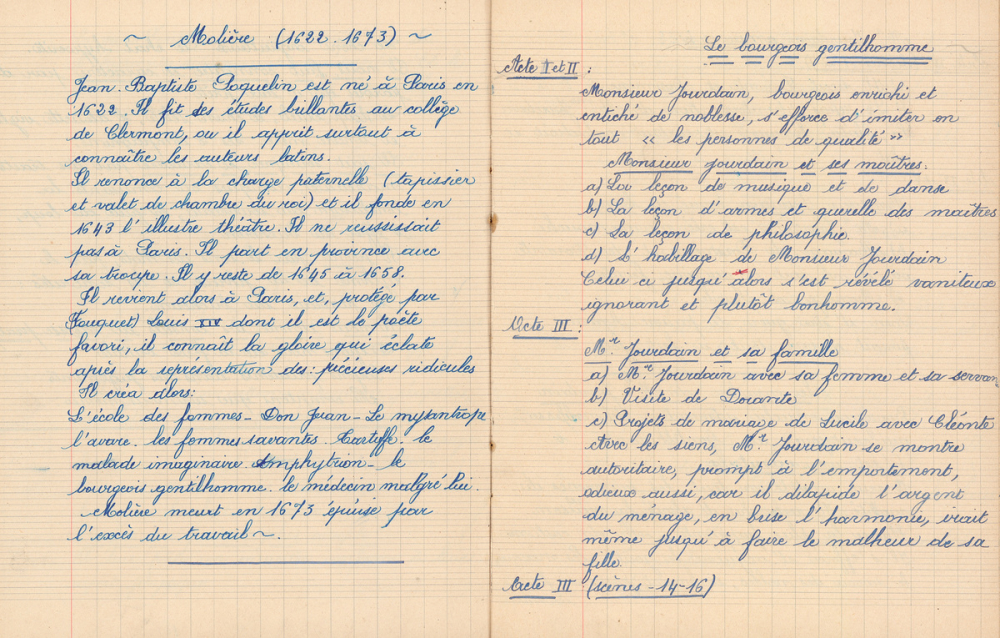 ~ Molière (1622.1673) ~
Jean.Baptiste Poquelin est né à Paris en
1622. Il fit des études brillantes au collège
de Clermont, ou il apprit surtout à
connaître les auteurs latins.
Il renonce à la charge paternelle (tapissier
et valet de chambre du roi) et il fonde en
1643 l'illustre théâtre. Il ne reussissait
pas à Paris. Il part en province avec
sa troupe. Il y reste de 1645 à 1658.
Il revient alors à Paris, et, protégé par
(Fouquet) Louis XIV dont il est le poète
favori, il connaît la gloire qui éclate
après la représentation des: précieuses ridicules
Il créa alors:
L'école des femmes - Don Juan - Le mysantrope
l'avare. les femmes savantes. Tartuffe. le
malade imaginaire. Amphytrion - le
bourgeois gentilhomme. le médecin malgré lui.
Molière meurt en 1673 épuise par
l'excès du travail ~.
Le bourgeois gentilhomme
Acte I et II :
Monsieur Jourdain, bourgeois enrichi et
entiché de noblesse, s'efforce d'imiter en
tout « les personnes de qualité »
Monsieur jourdain et ses maîtres:
a) La leçon de musique et de danse
b) La leçon d'armes et querelle des maîtres
c) La leçon de philosophie.
d) L'habillage de Monsieur Jourdain
Celui ci jusqu'alors s'est révélé vaniteux
ignorant et plutôt bonhomme.
Acte III :
Mr Jourdain et sa famille
a) Mr Jourdain avec sa femme et sa servan
b) Visite de Dorante
c) Projets de mariage de Lucile avec Cléonte
Avec les siens, Mr Jourdain se montre
autoritaire, prompt à l'emportement,
odieux aussi, car il dilapide l'argent
du ménage, en brise l'harmonie, irait
même jusqu'à faire le malheur de sa
fille.
Acte III : (scènes - 14-16)